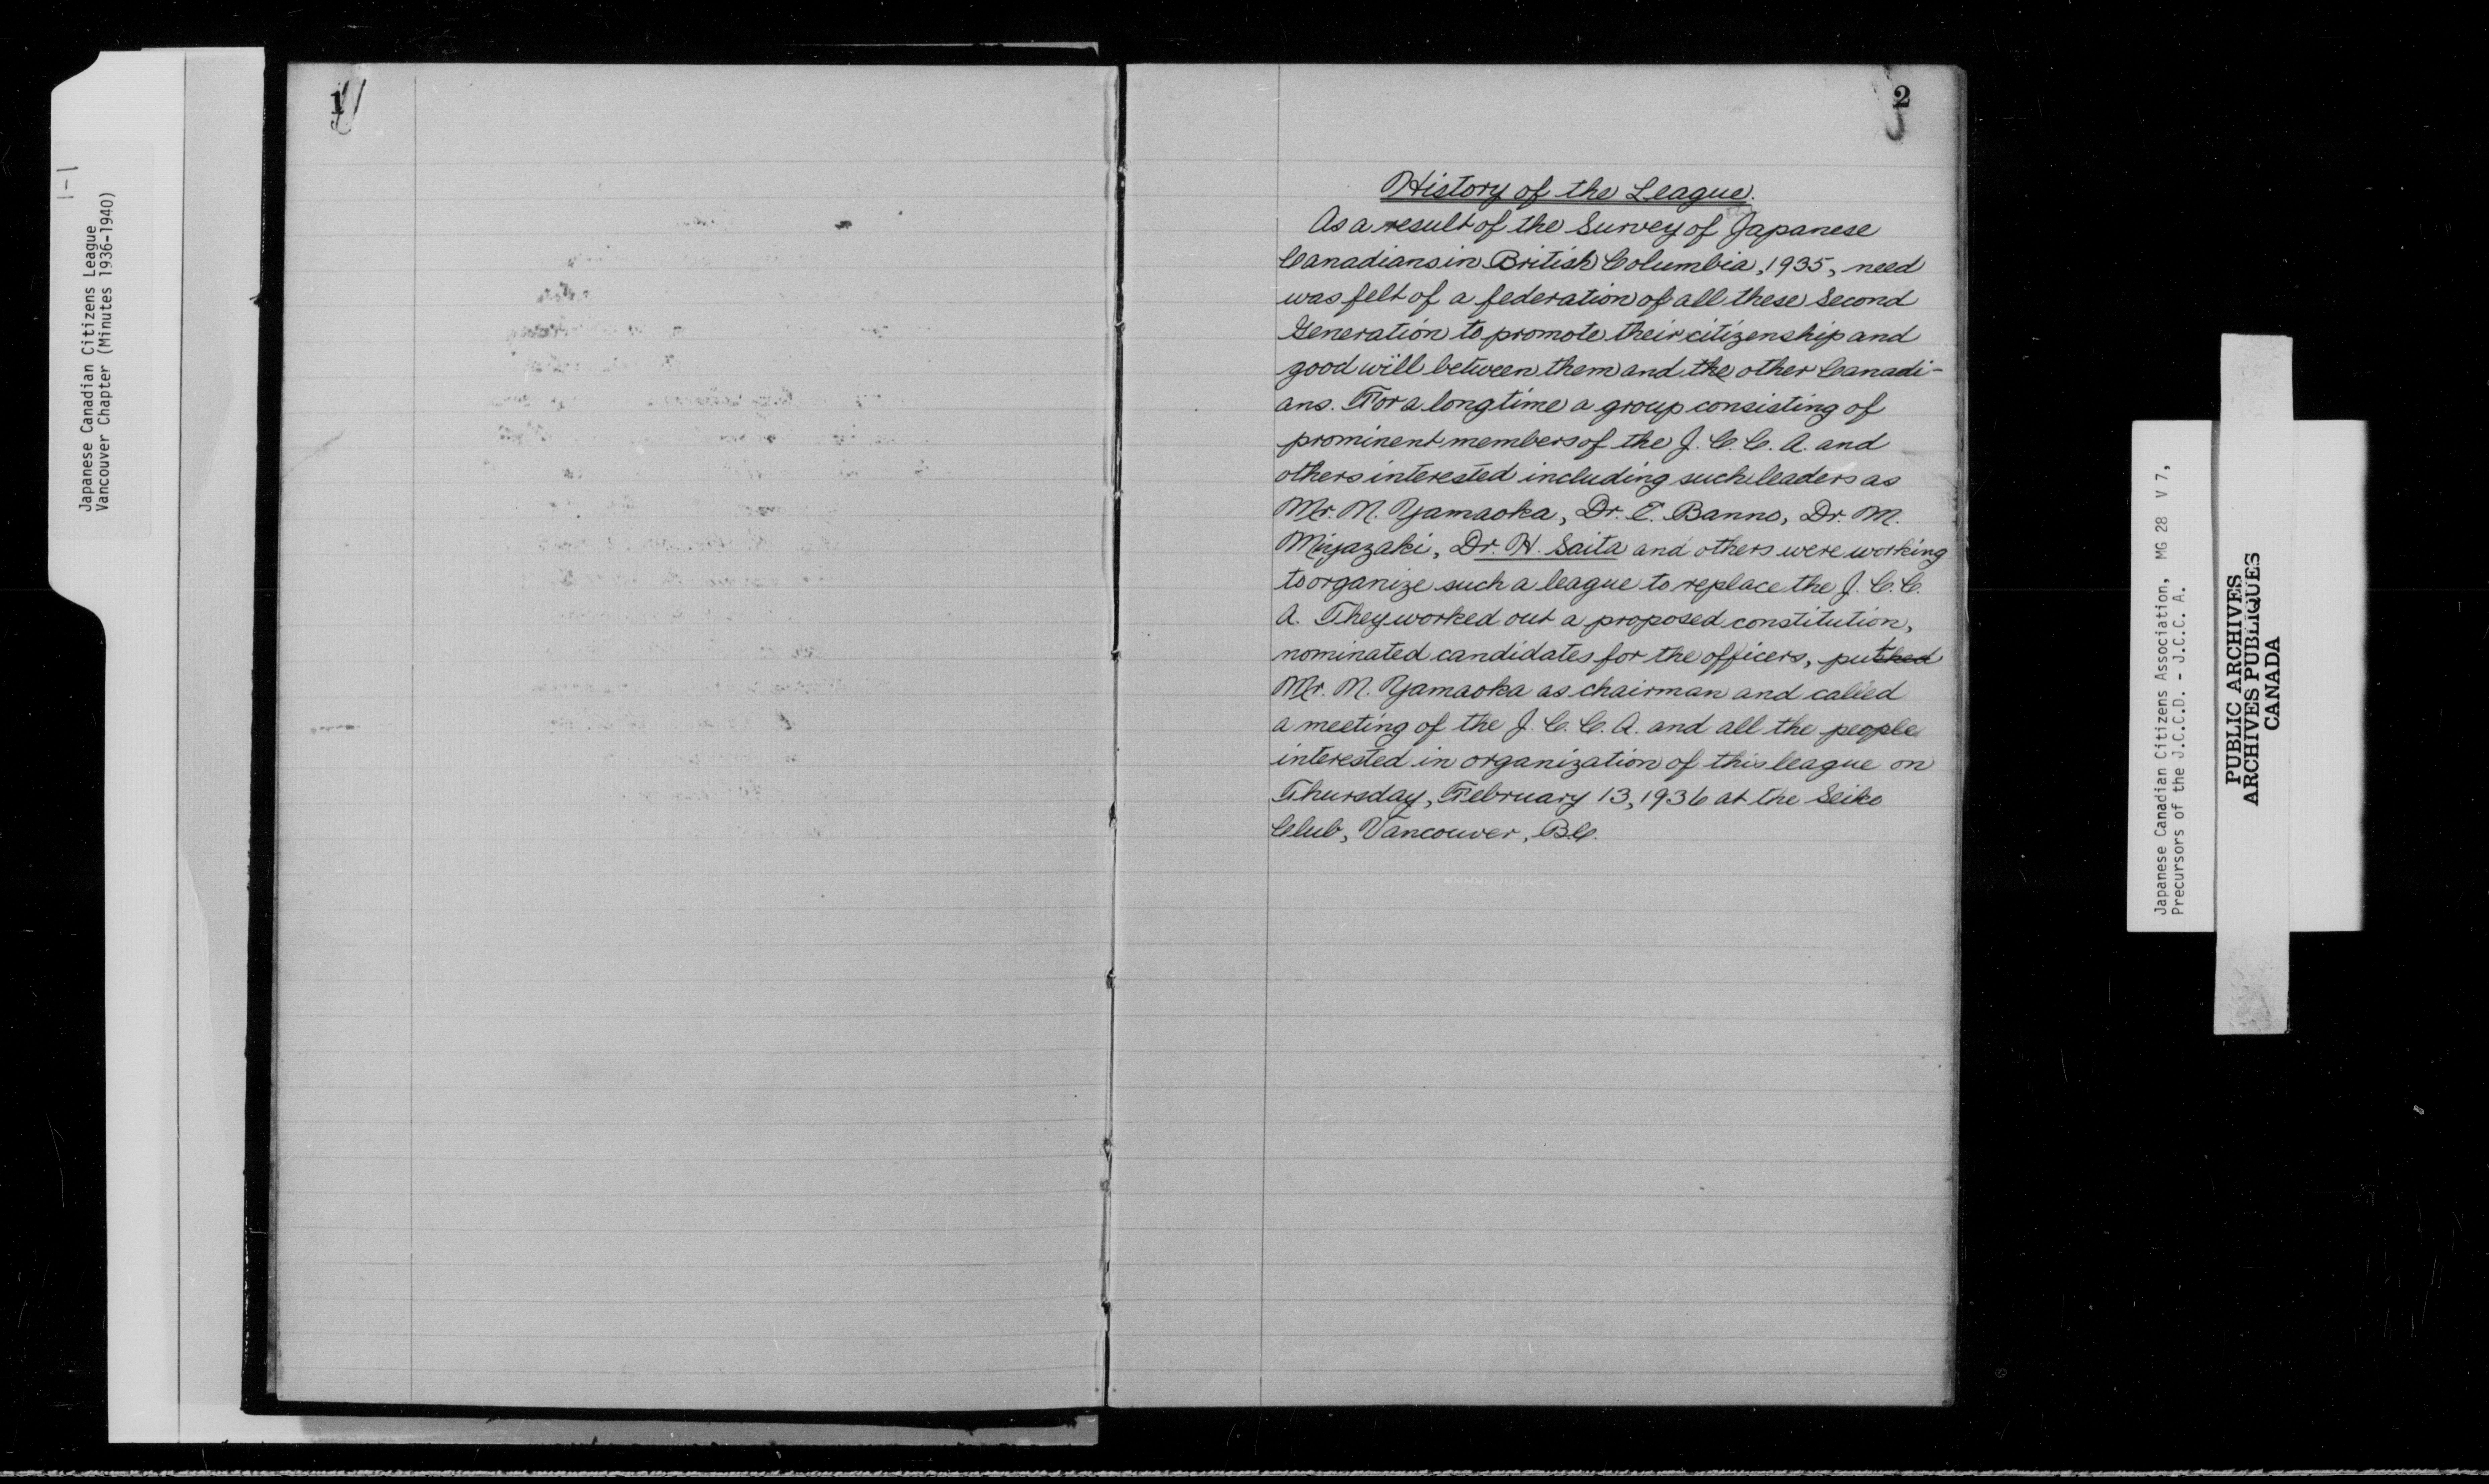 1-1
Japanese Canadian Citizens League
Vancouver Chapter (Minutes 1936-1940)
1
2
History of the League.
As a result of the Survey of Japanese
Canadians in British Columbia, 1935, need
was felt of a federation of all these Second
Generation to promote their citizenship and
good will between them and the other Canadi-
ans. For a long time a group consisting of
prominent members of the J. C. C. A. and
others interested including such leaders as
Mr. N. Yamaoka, Dr. E. Banno, Dr. M.
Miyazaki, Dr. H. Saita and others were working
to organize such a league to replace the J. C. C.
A. They worked out a proposed constitution,
nominated candidates for the officers, put
Mr. N. Yamaoka as chairman and called
a meeting of the J. C. C. A. and all the people
interested in organization of this league on
Thursday, February 13, 1936 at the Seiko
Club, Vancouver, B.C.
Japanese Canadian Citizens Association, MG 28 V 7,
Precursors of the J.C.C.D. - J.C.C. A.
PUBLIC ARCHIVES
ARCHIVES PUBLIQUES
CANADA